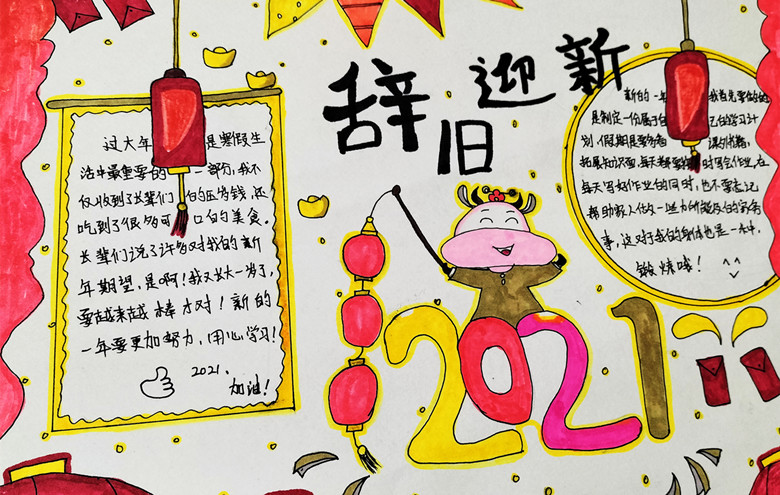 辞旧迎新
过大年 是寒假生
活中最重要的 一部分,我不
仅收到了长辈们 的压岁钱,还
吃到了很多可 口的美食。
长辈们说了许多对我的新
年期望,是啊!我又长大一岁了,
要越来越棒才对!新的
一年要更加努力,用心学习!
2021.
加油!
2021
新的一年 我首先要做的
是制定一份属于自 己的学习计
划,假期里要多看 课外书籍,
拓展知识面,每天都要 时写作业,在
每天写好作业的同时,也不要忘记
帮助家人做一些力所能及的家务
事,这对于我的身体也是一种
锻炼哦!^^